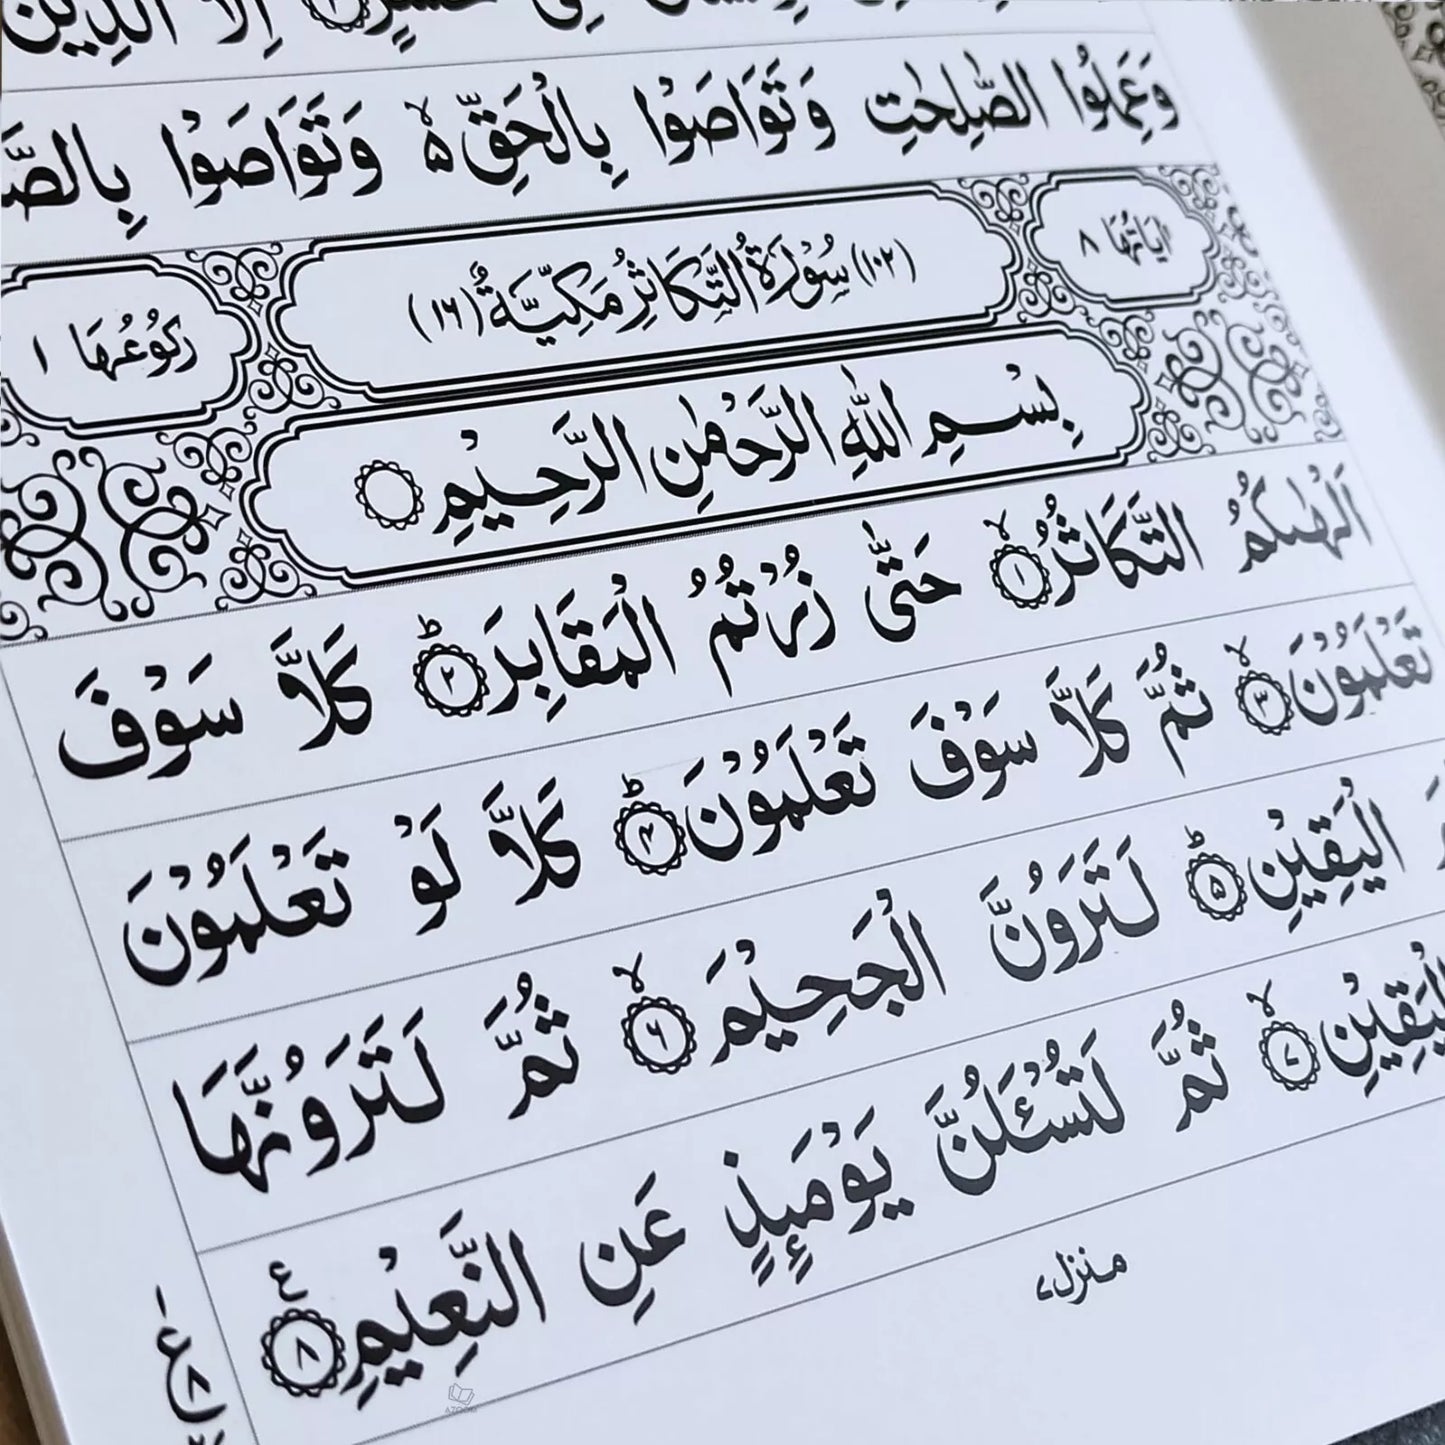 اِلَّا الَّذِيْنَ
وَعَمِلُوا الصّٰلِحٰتِ وَتَوَاصَوْا بِالْحَقِّ ۙ۬ وَتَوَاصَوْا
اٰيَاتُهَا ٨ (١٠٢) سُوْرَةُ التَّكَاثُرِ مَكِّيَّةٌ (١٦) رُكُوْعُهَا ١
بِسْمِ اللهِ الرَّحْمٰنِ الرَّحِيْمِ
اَلْهٰىكُمُ التَّكَاثُرُ ۙ﴿١﴾ حَتّٰى زُرْتُمُ الْمَقَابِرَ ؕ﴿٢﴾ كَلَّا سَوْفَ
تَعْلَمُوْنَ ۙ﴿٣﴾ ثُمَّ كَلَّا سَوْفَ تَعْلَمُوْنَ ؕ﴿٤﴾ كَلَّا لَوْ تَعْلَمُوْنَ
الْيَقِيْنِ ؕ﴿٥﴾ لَتَرَوُنَّ الْجَحِيْمَ ۙ﴿٦﴾ ثُمَّ لَتَرَوُنَّهَا
الْيَقِيْنِ ۙ﴿٧﴾ ثُمَّ لَتُسْـَٔلُنَّ يَوْمَىِٕذٍ عَنِ النَّعِيْمِ ﴿٨﴾ ع
منزل ٧